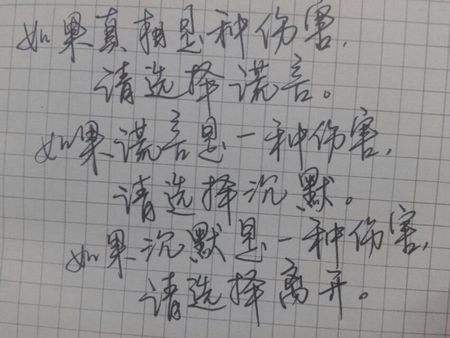 如果真相是一种伤害,
请选择谎言。
如果谎言是一种伤害,
请选择沉默。
如果沉默是一种伤害,
请选择离开。